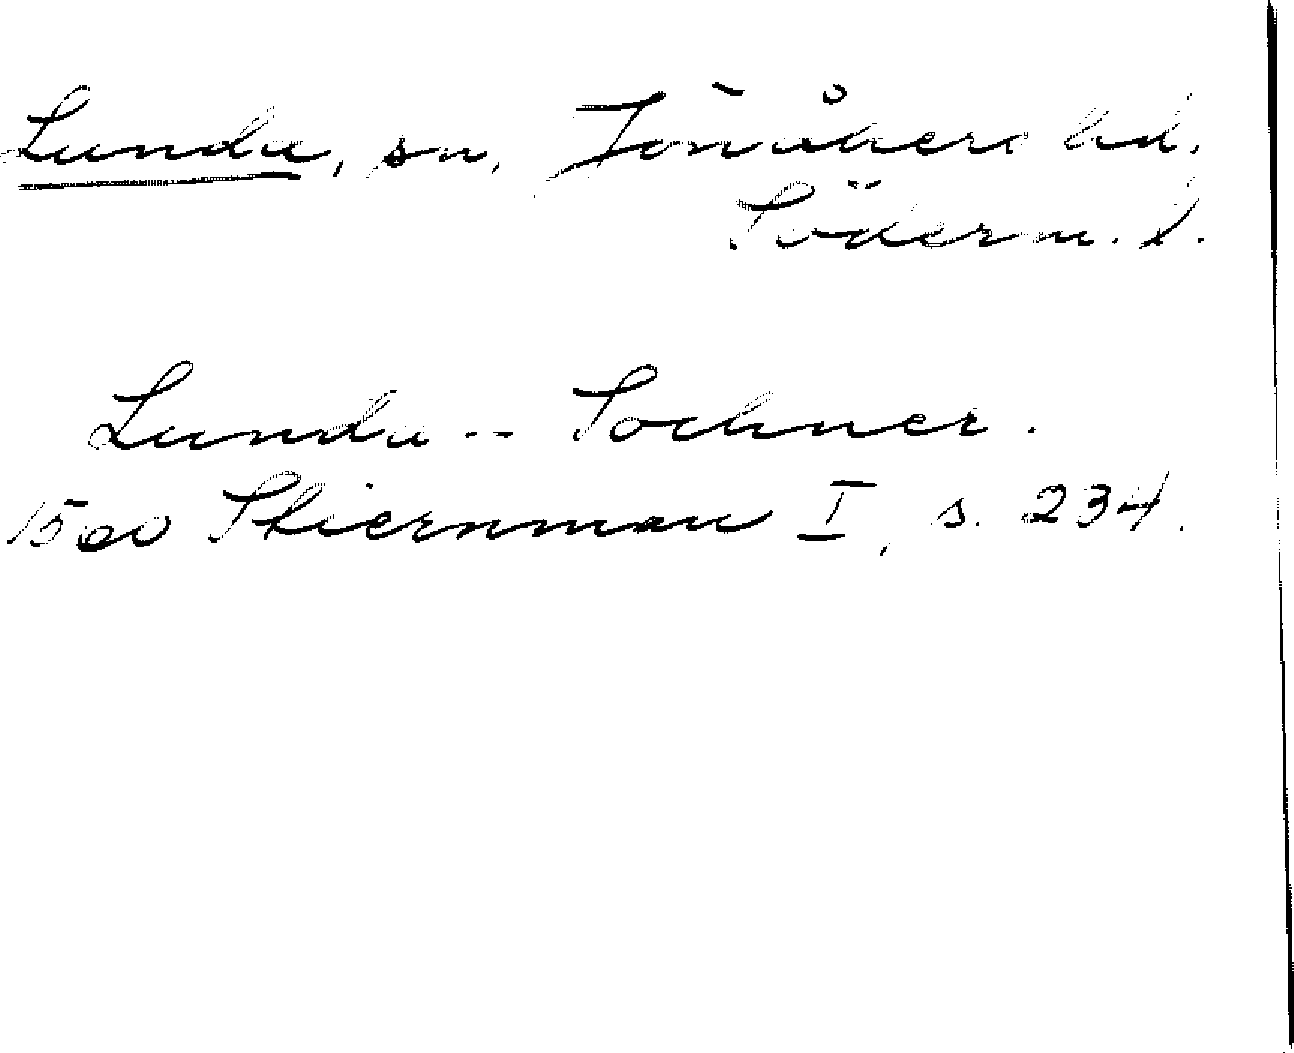 Lunda, sn, Jönåkers hd.
Söderm. l.
Lunda -- Sochner.
1500 Stiernman I, s. 234.